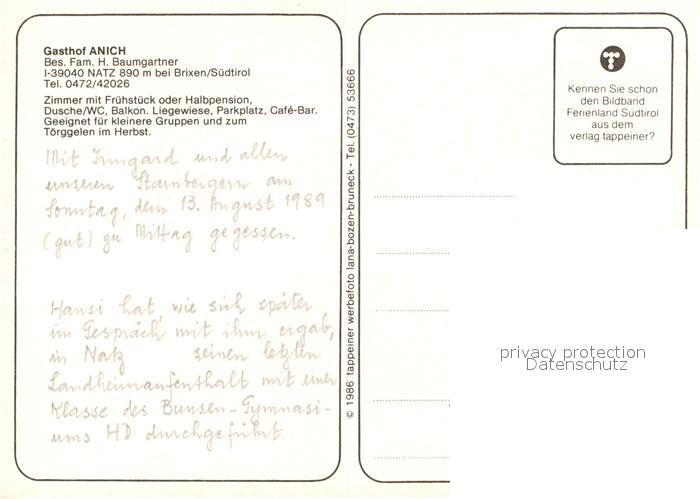 Gasthof ANICH
Bes. Fam. H. Baumgartner
I-39040 NATZ 890 m bei Brixen/Südtirol
Tel. 0472/42026
Zimmer mit Frühstück oder Halbpension,
Dusche/WC, Balkon. Liegewiese, Parkplatz, Café-Bar.
Geeignet für kleinere Gruppen und zum
Törggelen im Herbst.
Mit Irmgard und allen
unseren Starnbergern am
Sonntag, dem 13. August 1989
(gut) zu Mittag gegessen.
Hansi hat, wie sich später
im Gespräch mit ihm ergab,
in Natz seinen letzten
Landheimaufenthalt mit einer
Klasse des Bunsen-Gymnasi-
ums HD durchgeführt.
© 1986 tappeiner werbefoto lana-bozen-bruneck - Tel. (0473) 53666
Kennen Sie schon
den Bildband
Ferienland Südtirol
aus dem
verlag tappeiner?
privacy protection
Datenschutz